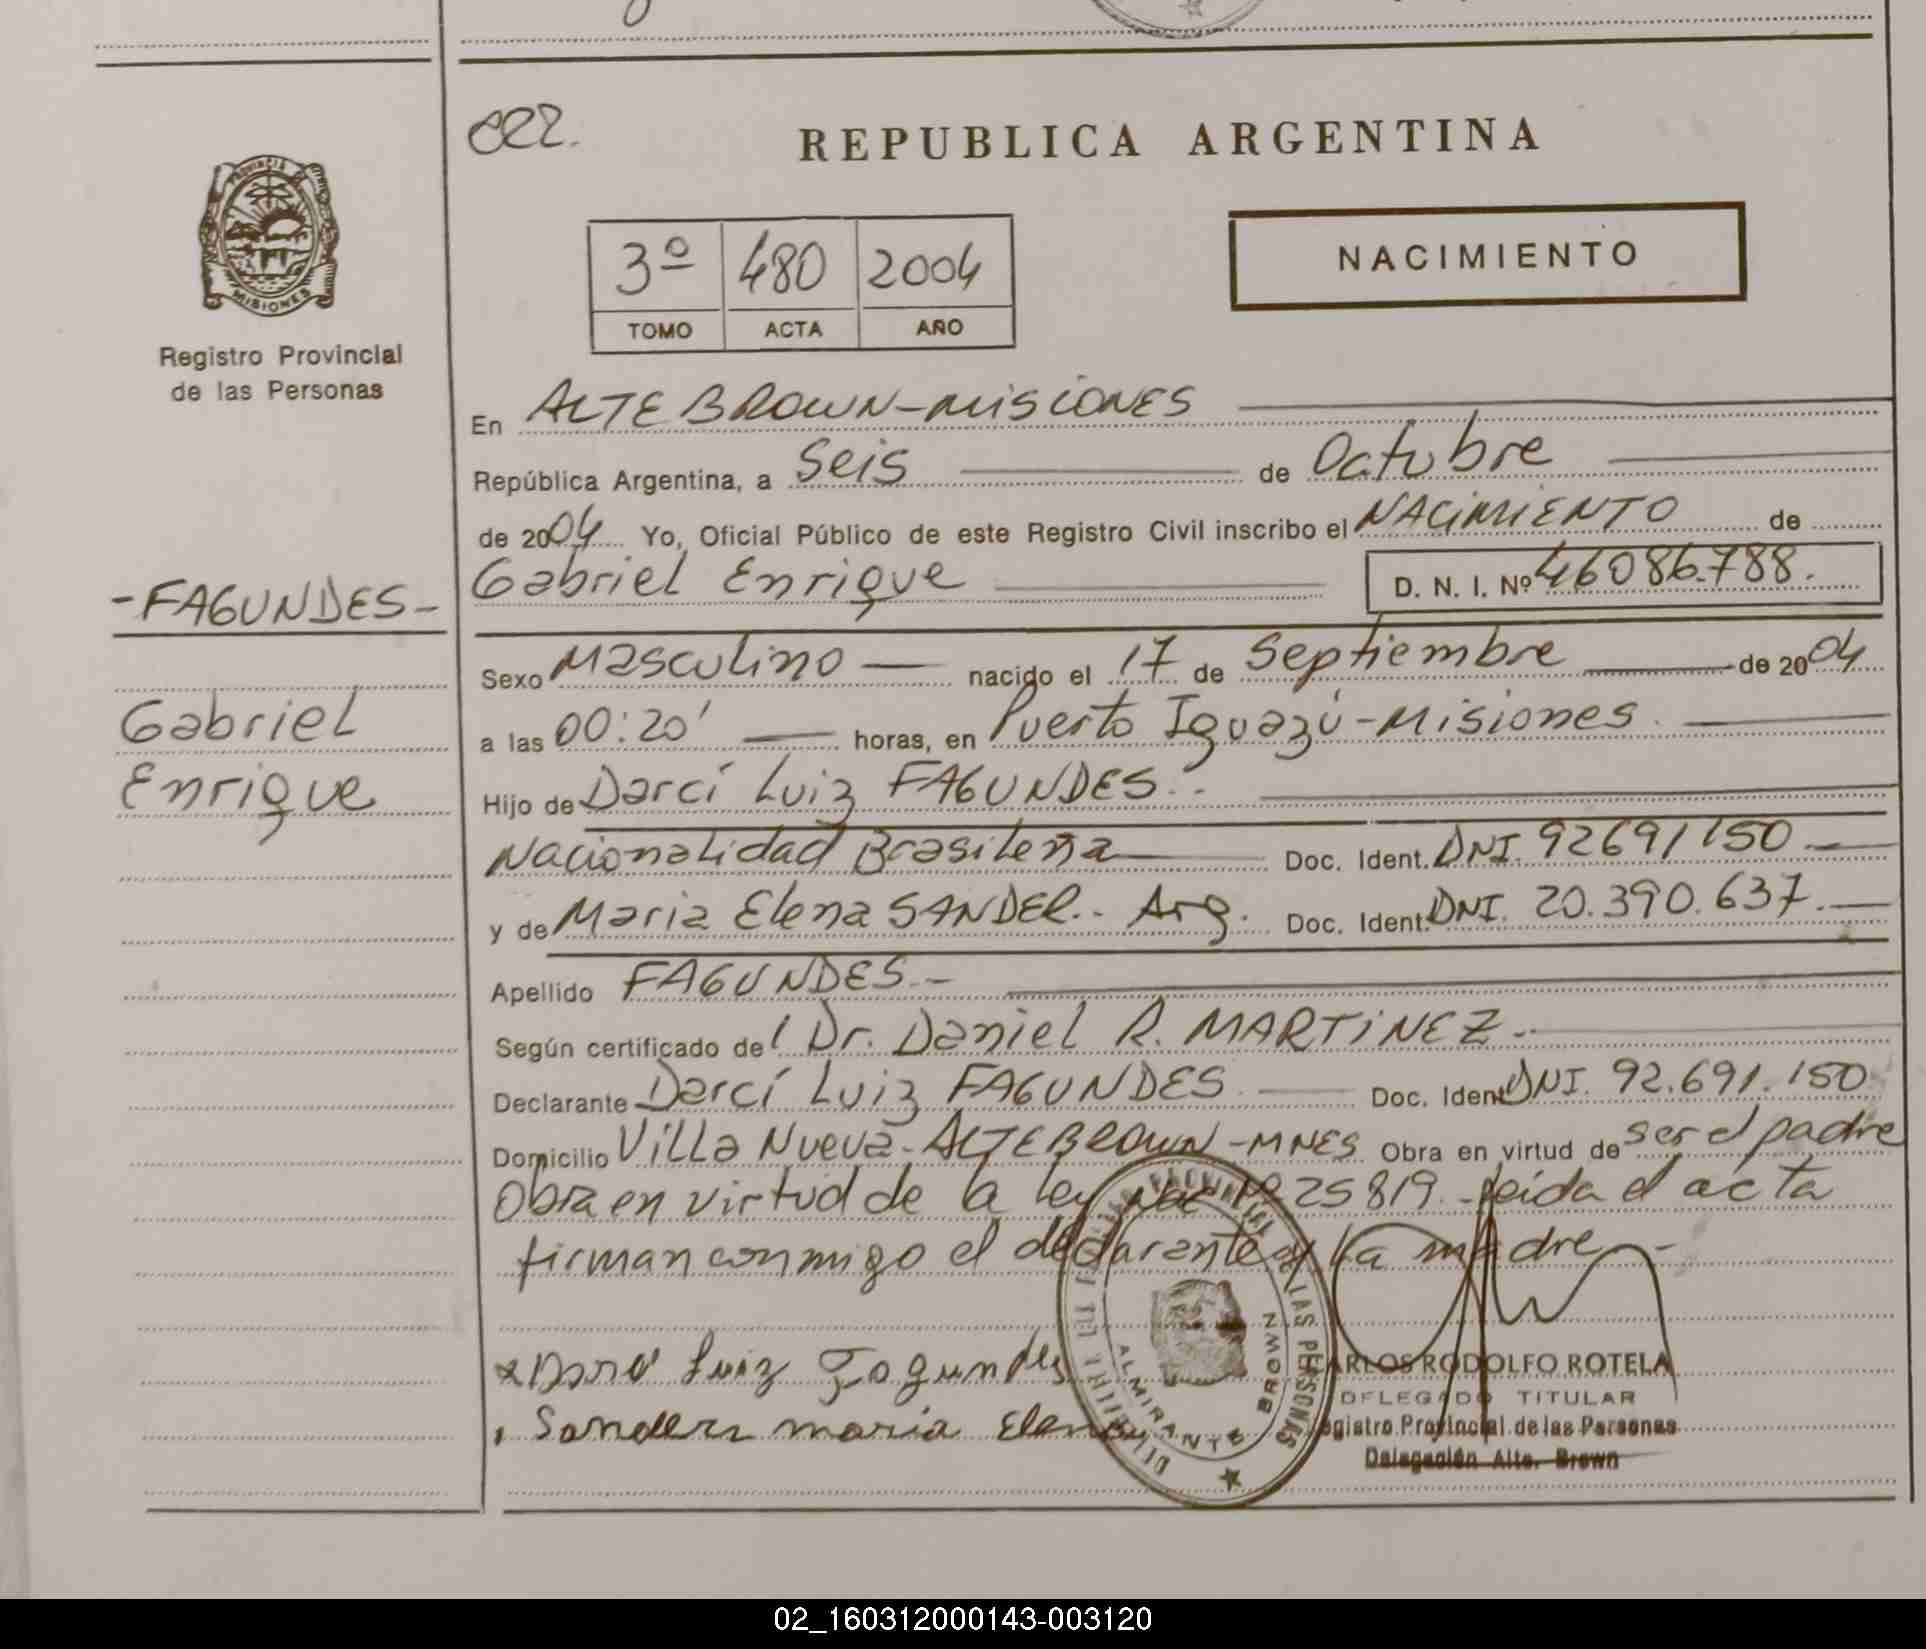 CEZ.
REPUBLICA ARGENTINA
PROVINCIA DE
MISIONES
Registro Provincial
de las Personas
3º 480 2004
TOMO ACTA AÑO
NACIMIENTO
En ALTE BROWN-MISIONES
República Argentina, a Seis de Octubre
de 2004 Yo, Oficial Público de este Registro Civil inscribo el NACIMIENTO de
Gabriel Enrique D. N. I. Nº 46086.788.
-FAGUNDES-
Gabriel
Enrique
Sexo Masculino nacido el 17 de Septiembre de 2004
a las 00:20' horas, en Puerto Iguazú-Misiones.
Hijo de Darcí Luiz FAGUNDES.-
Nacionalidad Brasileña Doc. Ident. DNI. 92691150
y de Maria Elena SANDER.. Arg. Doc. Ident. DNI. 20.390.637.
Apellido FAGUNDES.-
Según certificado de / Dr. Daniel R. MARTiNEZ.-
Declarante Darcí Luiz FAGUNDES Doc. Ident DNI. 92.691.150
Domicilio Villa Nueva-ALTE BROWN-MNES Obra en virtud de ser el padre
Obra en virtud de la ley Nac Nº 25819. leida el acta
firman conmigo el declarante y la madre.-
x Darci Luiz Fagundes
Sander maria Elena
ALMIRANTE BROWN
LAS PERSONAS
CARLOS RODOLFO ROTELA
DELEGADO TITULAR
Registro Provincial de las Personas
Delegación Alte. Brown
02_160312000143-003120